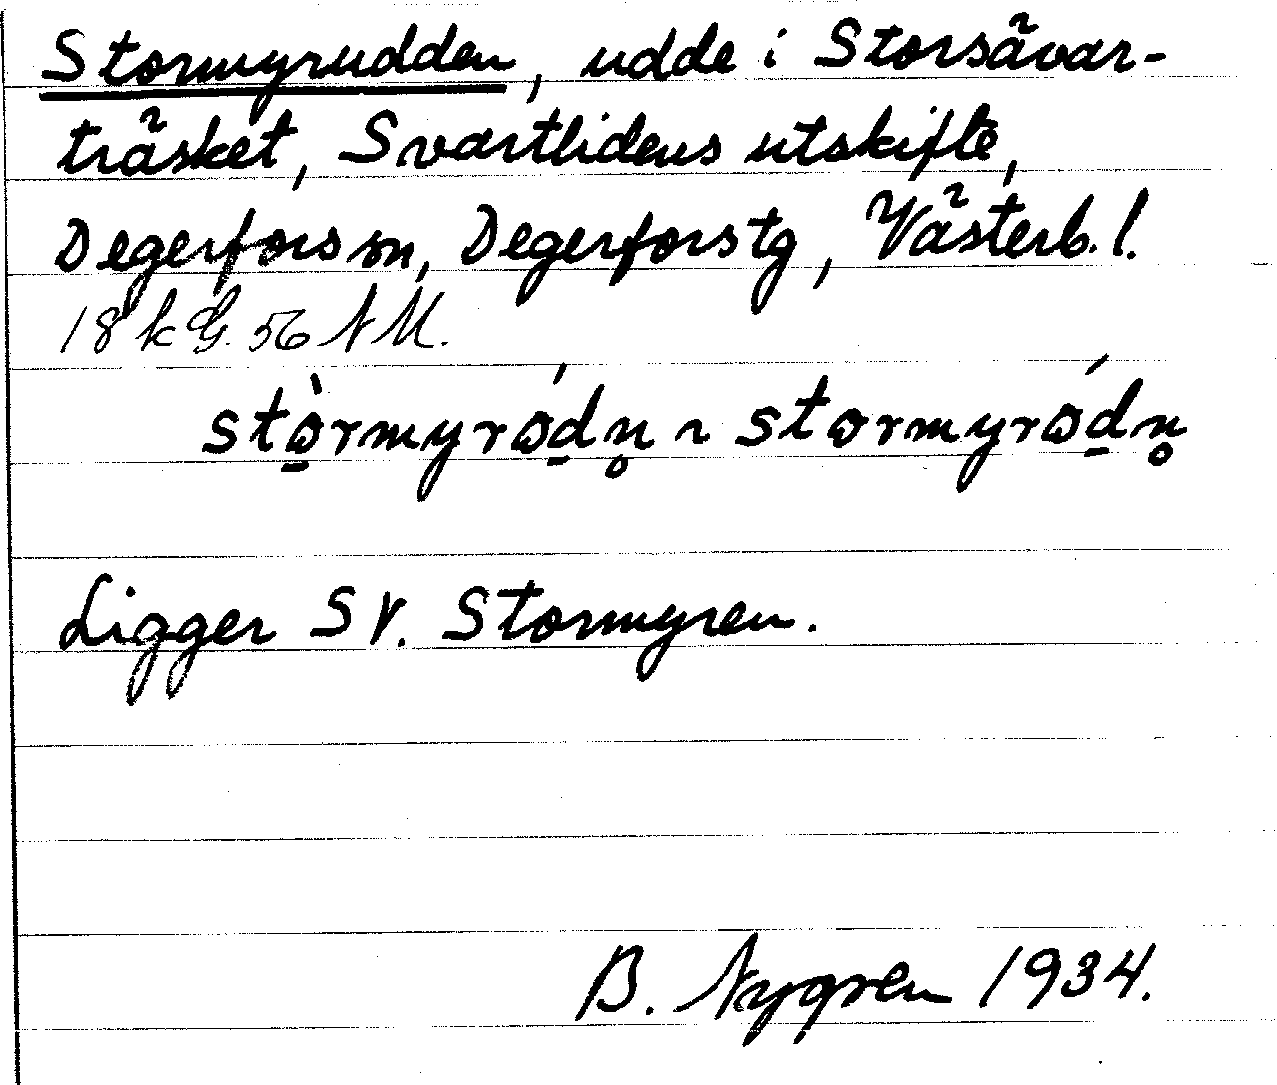 Stormyrudden, udde i Storsävar-
träsket, Svartlidens utskifte,
Degerfors sn, Degerfors tg, Västerb. l.
18 k G. 56 NM.
stò̱rmyró̱dn̥ ~ stormyró̱dn̥
Ligger SV. Stormyren.
B. Nygren 1934.